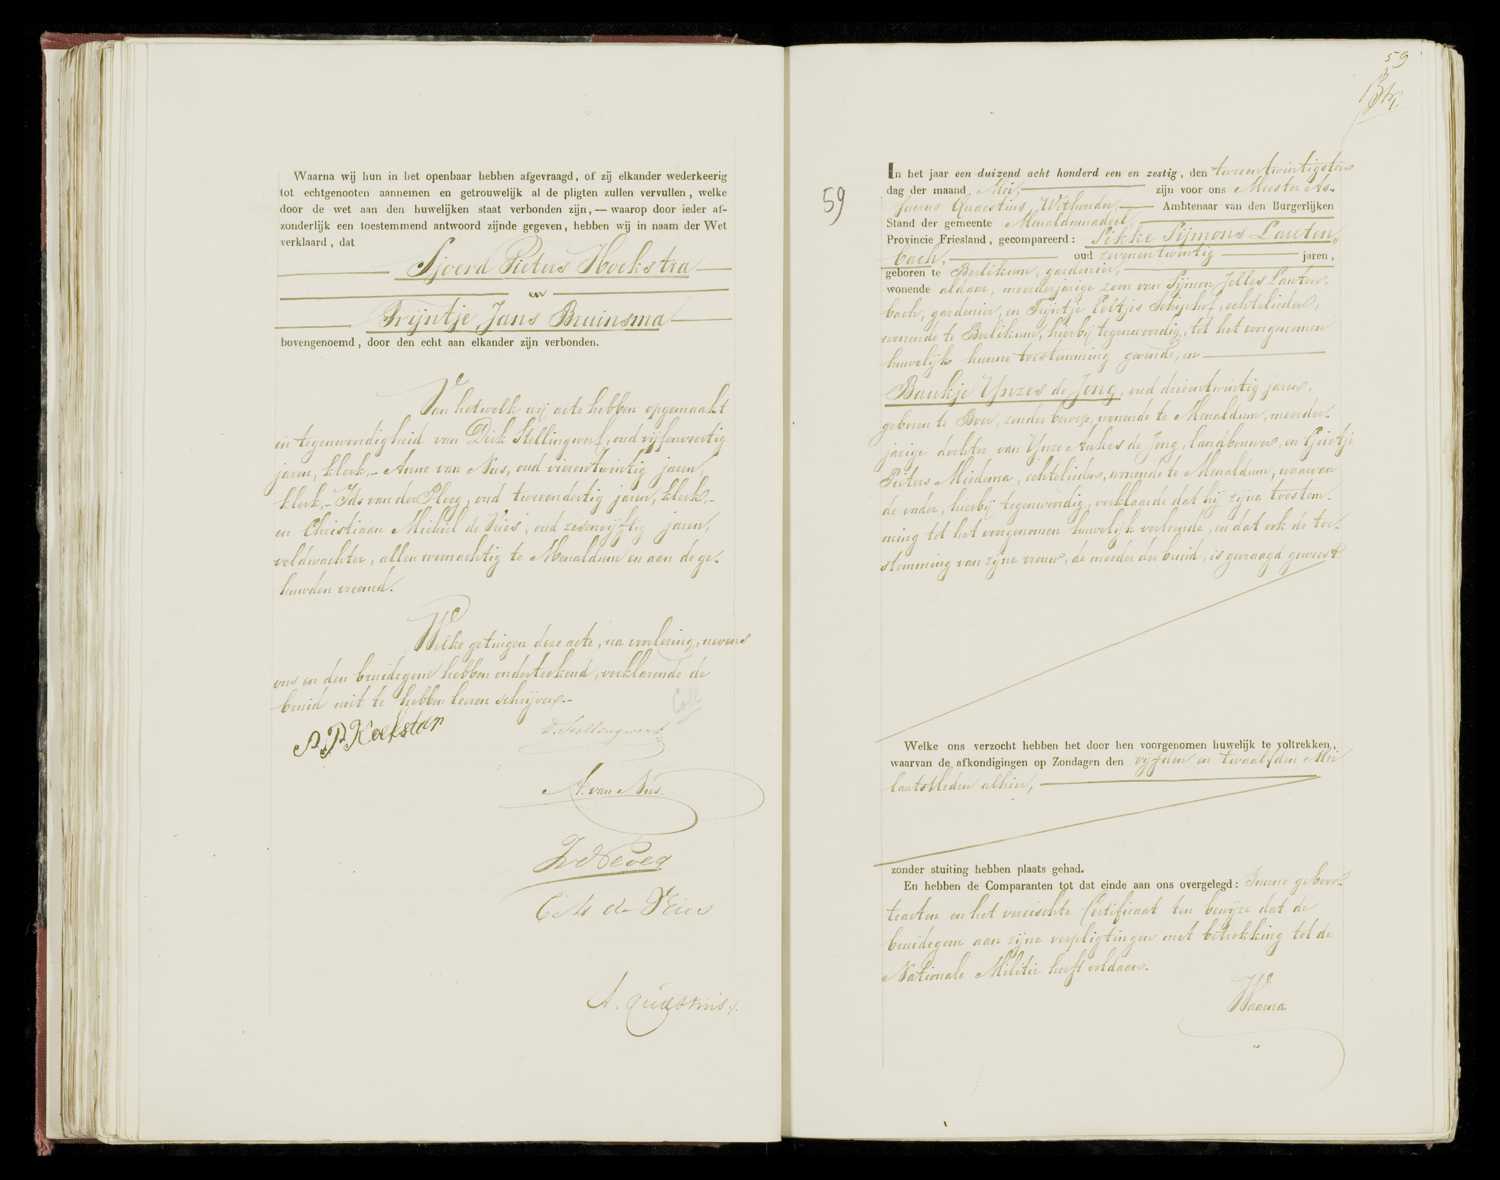 Waarna wij hun in het openbaar hebben afgevraagd, of zij elkander wederkeerig
tot echtgenooten aannemen en getrouwelijk al de pligten zullen vervullen, welke
door de wet aan den huwelijken staat verbonden zijn, — waarop door ieder af-
zonderlijk een toestemmend antwoord zijnde gegeven, hebben wij in naam der Wet
verklaard, dat
Sjoerd Pieters Hoekstra
en
Trijntje Jans Bruinsma
bovengenoemd, door den echt aan elkander zijn verbonden.
Van hetwelk wij acte hebben opgemaakt
in tegenwoordigheid van Dirk Stellingwerf, oud vijfenveertig
jaren, klerk, - Anne van Nes, oud vierentwintig jaren,
klerk, - Ids van der Ploeg, oud tweeendertig jaren, klerk, -
en Christiaan Michiel de Vries, oud zesenvijftig jaren,
veldwachter, allen woonachtig te Menaldum en aan de ge-
huwden vreemd.
Welke getuigen deze acte, na voorlezing, nevens
ons en den bruidegom hebben onderteekend, verklarende de
bruid niet te hebben leeren schrijven. -
Coll
S. P. Hoekstra
D. Stellingwerf
A. van Nes
C M de Vries
A. Quaestius
59
59
In het jaar een duizend acht honderd een en zestig, den tweeentwintigsten
dag der maand Mei, zijn voor ons Meester As-
Quaestius, Wethouder, Ambtenaar van den Burgerlijken
Stand der gemeente Menaldumadeel
Provincie Friesland, gecompareerd: Sikke Sijmons Lauten-
bach, oud zevenentwintig jaren,
geboren te Berlikum, gardenier,
wonende aldaar, meerderjarige zoon van Sijmon Jelles Lauten-
bach, gardenier, en Trijntje echtelieden,
wonende te Berlikum, hierbij tegenwoordig, tot het voorgenomen
huwelijk hunne toestemming gevende, en
Baukje Ynzes de Jong, oud drieentwintig jaren,
geboren te Boer, zonder beroep, wonende te Menaldum, meerder-
jarige dochter van Ynze Aukes de Jong, landbouwer, en Grietje
Pieters Meidema, echtelieden, wonende te Menaldum, waarvan
de vader, hierbij tegenwoordig, verklaarde dat hij zijne toestem-
ming tot het voorgenomen huwelijk verleende, en dat ook de toe-
stemming van zijne vrouw, de moeder der bruid, is gevraagd geweest
Welke ons verzocht hebben het door hen voorgenomen huwelijk te voltrekken,
waarvan de afkondigingen op Zondagen den vijfden en twaalfden Mei
laatstleden alhier,
zonder stuiting hebben plaats gehad.
En hebben de Comparanten tot dat einde aan ons overgelegd: hunne geboor-
teacten en het vereischte Certificaat ten bewijze dat de
bruidegom aan zijne verpligtingen met betrekking tot de
Nationale Militie heeft voldaan.
Waarna